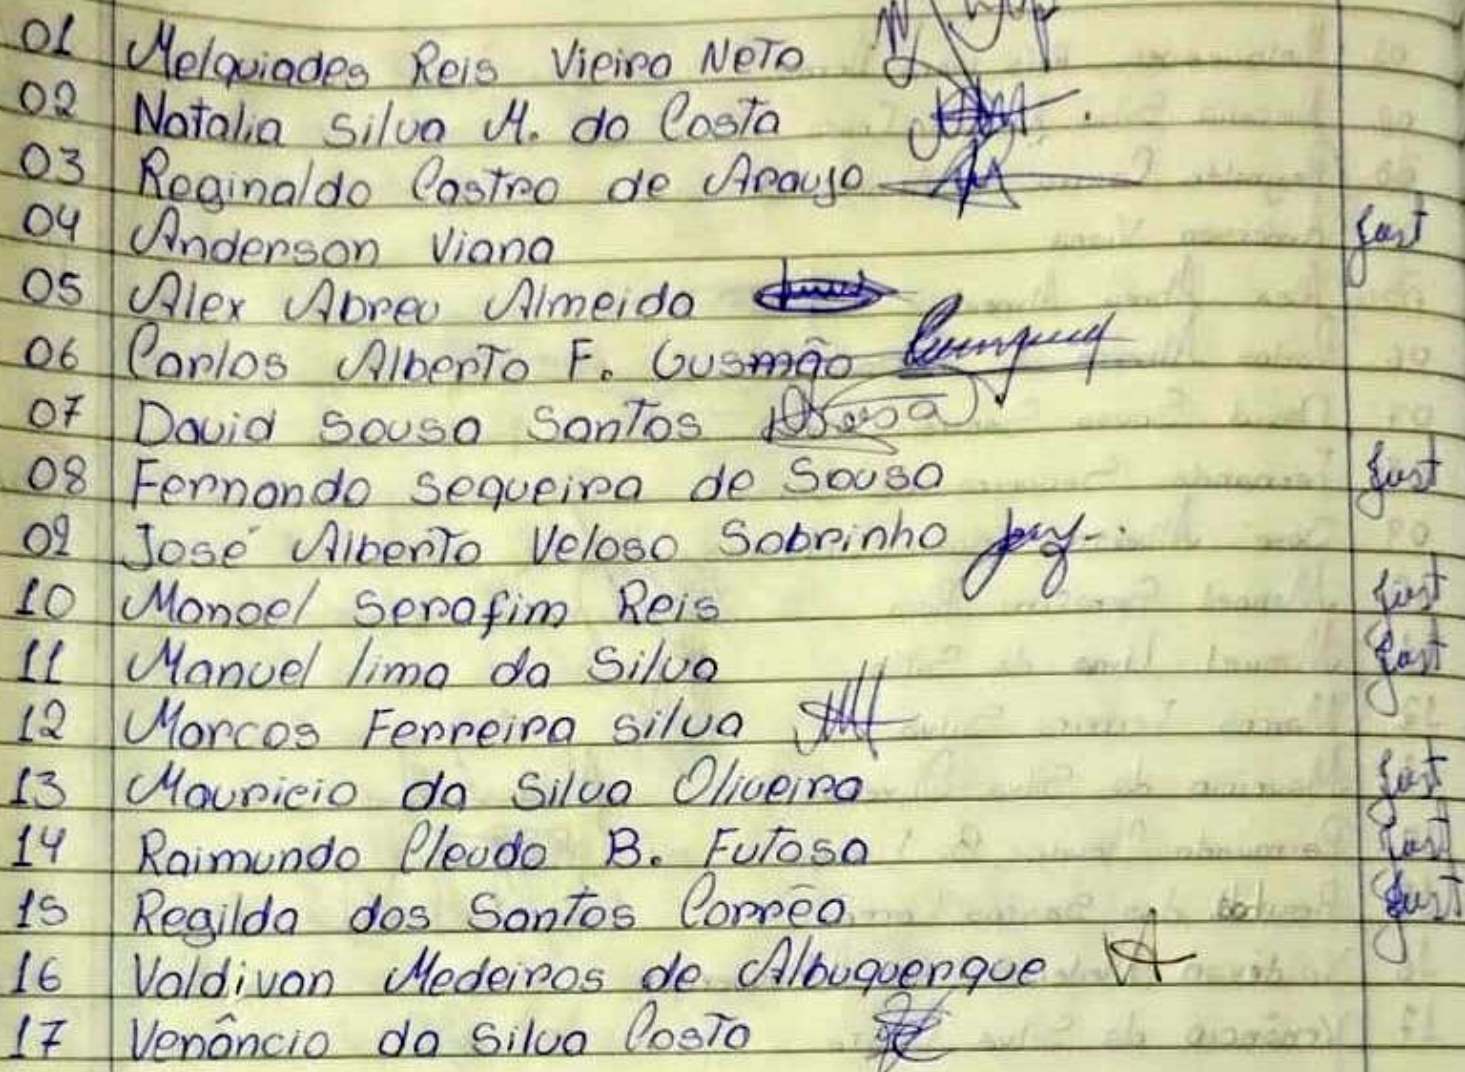 01 Melquiades Reis Vieira Neto
02 Natalia Silva M. da Costa
03 Reginaldo Castro de Araujo
04 Anderson Viana Just
05 Alex Abreu Almeida
06 Carlos Alberto F. Gusmão
07 David Sousa Santos
08 Fernando Sequeira de Sousa Just
09 José Alberto Veloso Sobrinho
10 Manoel Serafim Reis Just
11 Manuel lima da Silva Just
12 Marcos Ferreira Silva
13 Mauricio da Silva Oliveira Just
14 Raimundo Cleudo B. Futosa Just
15 Regilda dos Santos Corrêa Just
16 Valdivan Medeiros de Albuquerque
17 Venâncio da Silva Costa